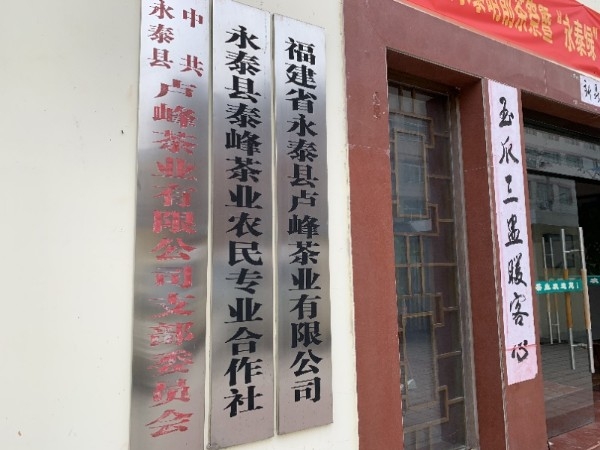 中共
永泰县
卢峰茶业有限公司支部委员会
永泰县泰峰茶业农民专业合作社
福建省永泰县卢峰茶业有限公司
玉爪三盏暖客心